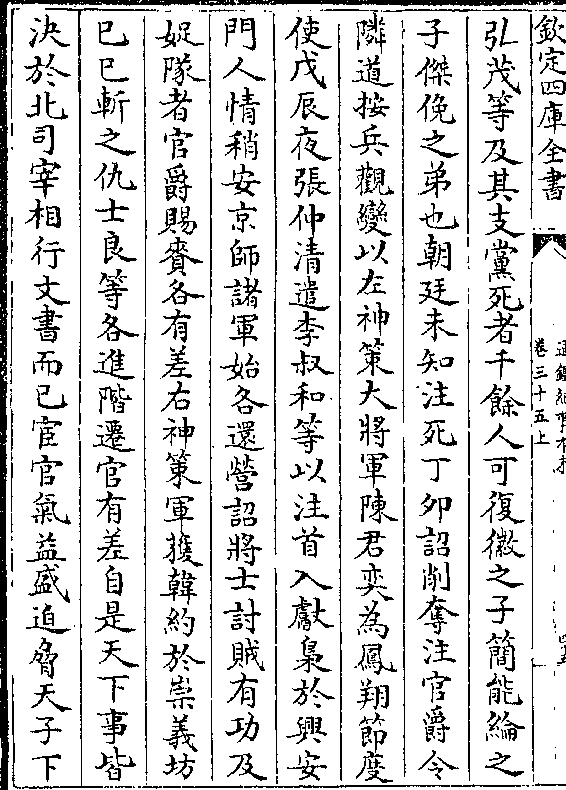 欽定四庫全書
卷三十五上
弘茂等及其支黨死者千餘人可復徽之子簡能綸之
子傑俛之弟也朝廷未知注死丁卯詔削奪注官爵令
隣道按兵觀變以左神策大將軍陳君奕為鳳翔節度
使戊辰夜張仲清遣李叔和等以注首入獻梟於興安
門人情稍安京師諸軍始各還營詔將士討賊有功及
娖隊者官爵賜賚各有差右神策軍獲韓約於崇義坊
巳巳斬之仇士良等各進階遷官有差自是天下事皆
決於北司宰相行文書而已宦官氣益盛迫脅天子下